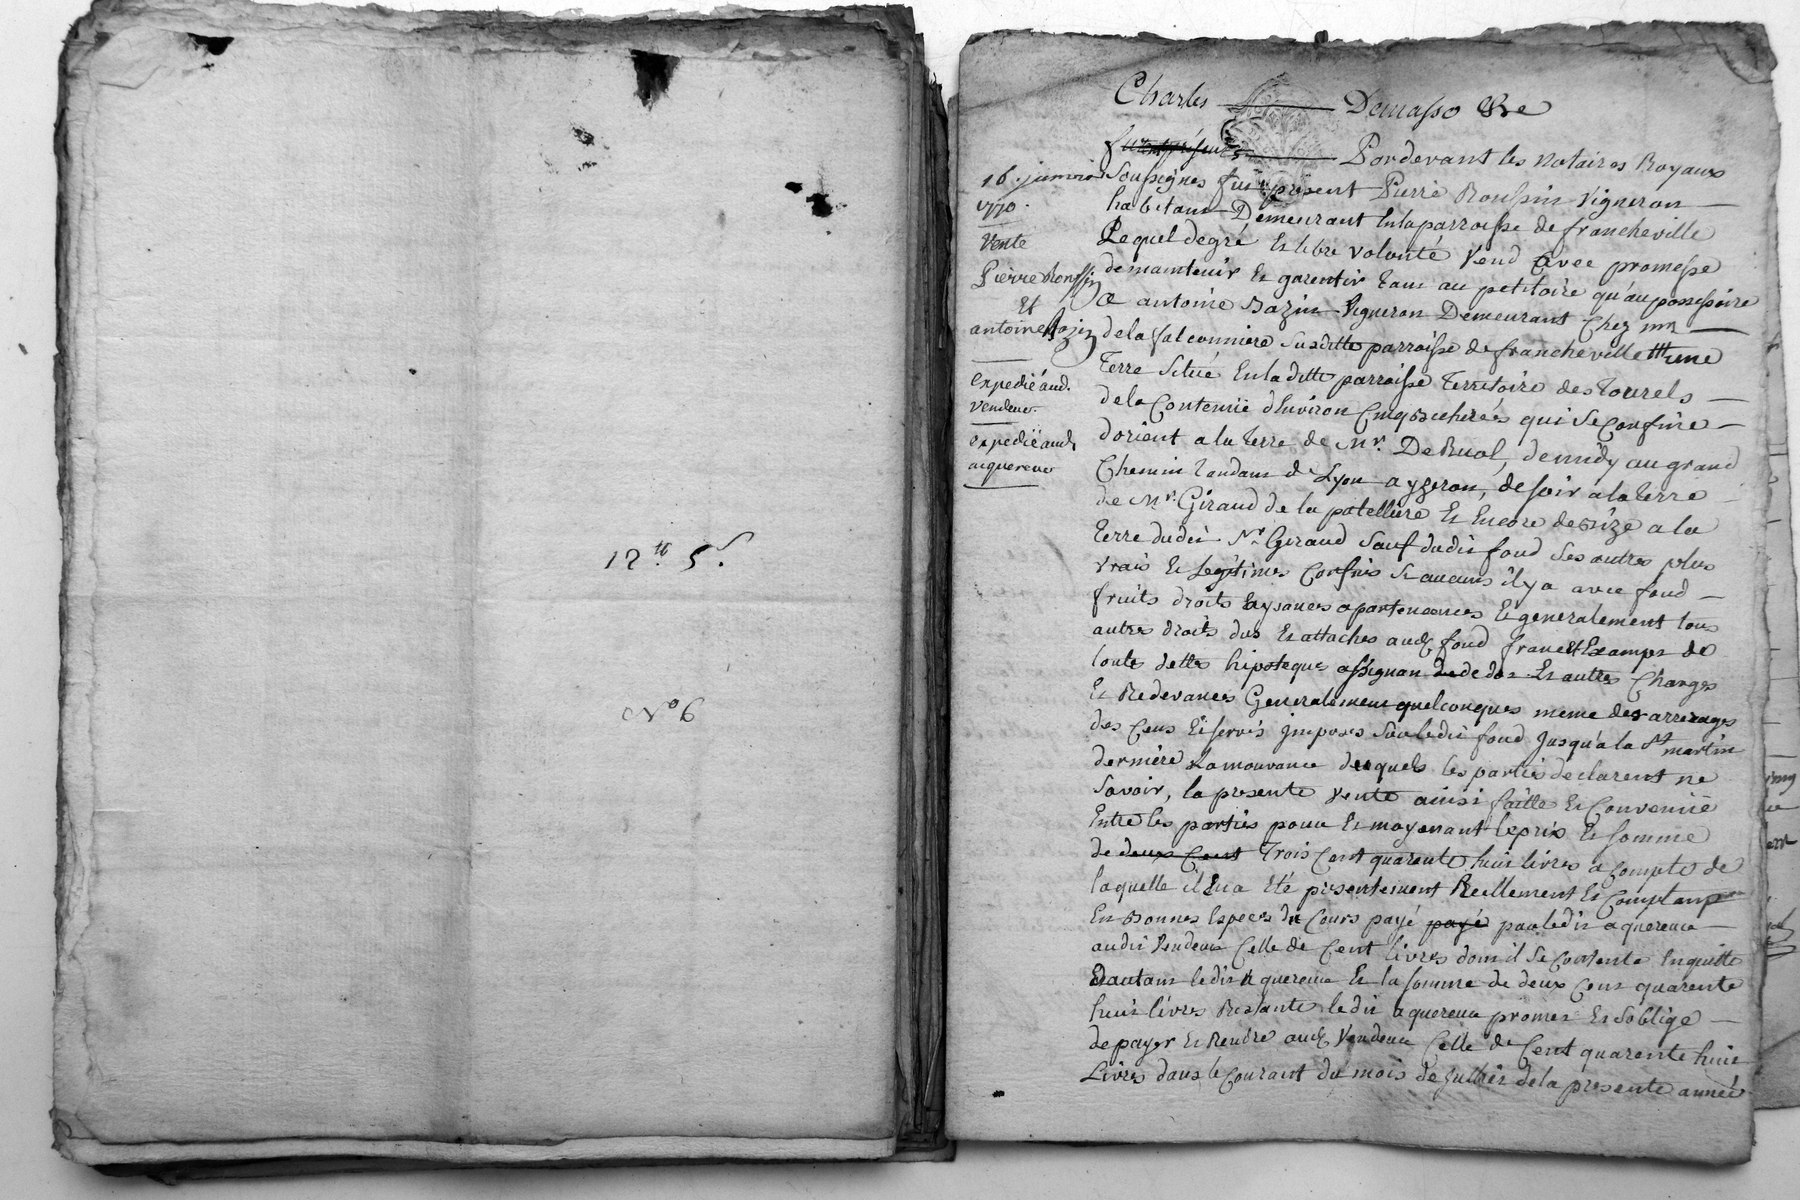 12.tt 5.s
No 6
Charles Demasso &c
Pardevant les Notaires Royaux
16. janvier
1770.
Vente
Pierre Roussin
Et
antoine Bazin
expedié aud.
vendeur.
expedié aud.
aquereur
Soussignés fut present Pierre Roussin Vigneron
habitant Demeurant En la parroisse de francheville
Lequel de gré Et libre volonté Vend avec promesse
de maintenir Et garentir tant au petitoire qu'au possessoire
a antoine Bazin Vigneron Demeurant Chez mr
de la falconniere Susditte parroisse de francheville une
Terre Située En la ditte parroisse Territoire des Tourels
de la Contenüe d'Environ Cinq bicherées qui Se Confine
d'orient a la terre de Mr. De Ruol, de midy au grand
Chemin tendant de Lyon a yzeron, de soir a la terre
de Mr. Giraud de la patelliere Et Encore de bize a la
terre dudit Sr. Giraud Sauf dudit fond Ses autres plus
vrais Et Legitimes Confins Si aucuns il y a avec fond
fruits droits aysances apartenances Et generalement tous
autres droits dus Et attachés aud. fond franc Et Exempt de
toute dette hipoteque assignan de dot Et autres Charges
Et Redevances Generalement quelconques meme des arrerages
des Cens Et servis imposés Sur ledit fond Jusqu'a la St martin
derniere La mouvance desquels les parties declarent ne
Savoir, la presente vente ainsi faitte Et Convenüe
Entre les parties pour Et moyenant le prix Et somme
de deux Cent Trois Cent quarente huit livres a Compte de
laquelle il En a Eté presentement Reellement Et Comptant
En Bonnes Especes du Cours payé payé par ledit aquereur
audit Vendeur Celle de Cent livres dont il Se Contente En quitte
D'autant ledit aquereur Et la somme de deux Cent quarente
huit livres Restante ledit aquereur promet Et S'oblige
de payer Et Rendre aud. Vendeur Celle de Cent quarente huit
Livres dans le Courant du mois de Juillet de la presente année